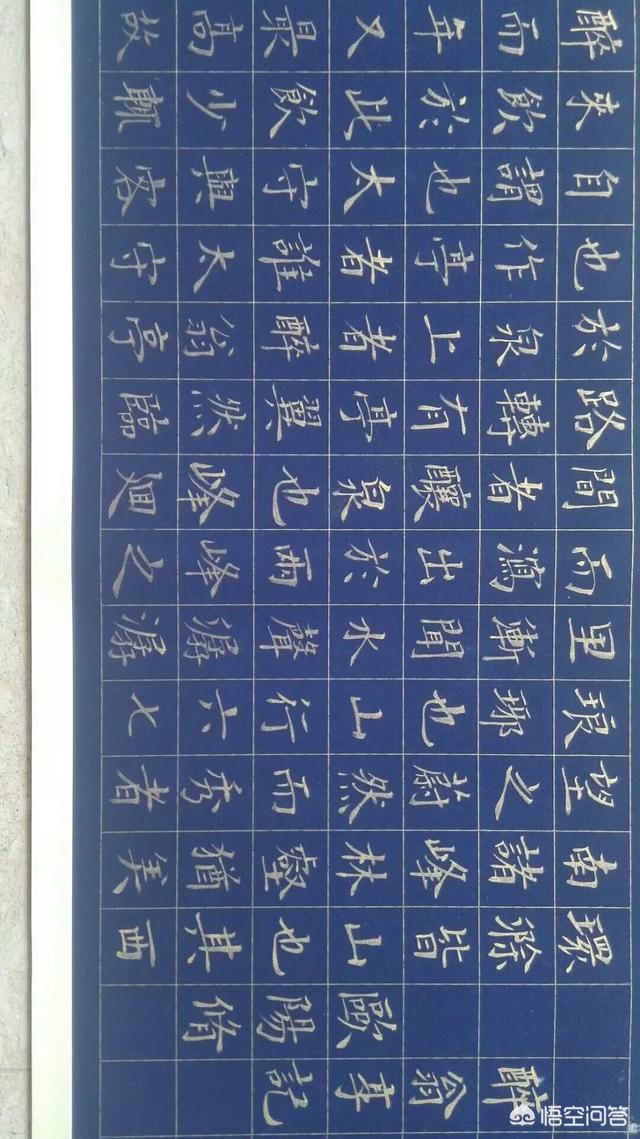 醉翁亭記
歐陽脩
環滁皆山也其西
南諸峰林壑猶美
望之蔚然而秀者
琅琊也山行六七
里漸聞水聲潺潺
而瀉出於兩峰之
間者釀泉也峰廻
路轉有亭翼然臨
於泉上者醉翁亭
也作亭者誰太守
自謂也太守與客
來飲於此飲少輒
醉而年又最高故
悟空问答